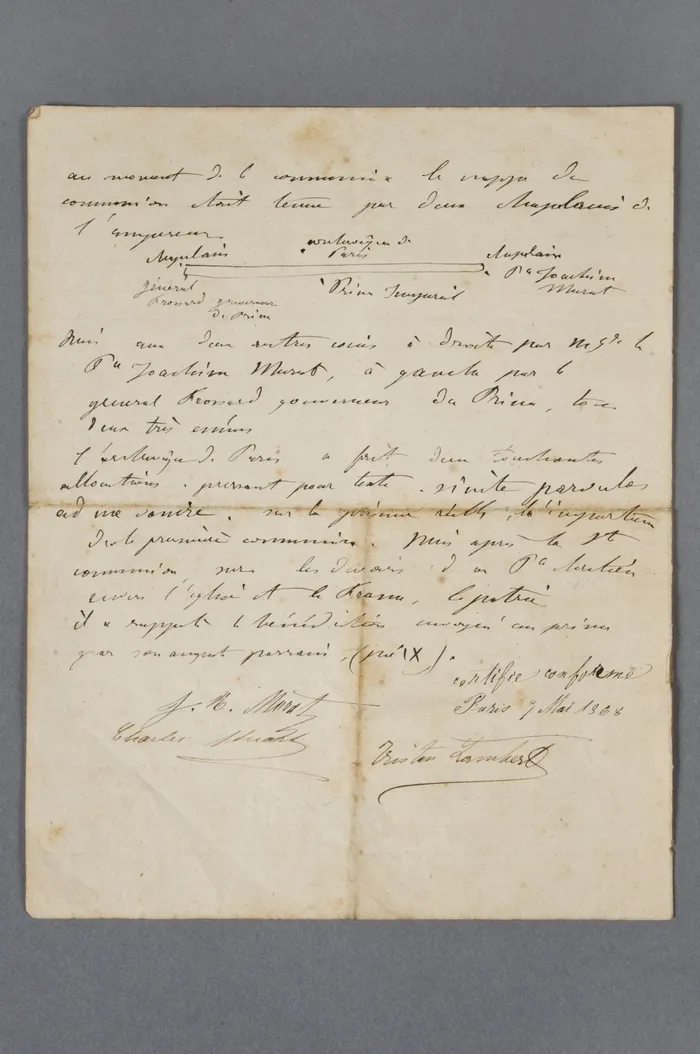 au moment de la communion la nappe de
communion était tenue par deux chapelains de
l'empereur
archevêque de
chapelain Paris chapelain
général Prince Impérial Pce Joachim
Frossard gouverneur Murat
du Prince
ainsi que deux autres coins à droite par Mgr le
Pce Joachim Murat, à gauche par le
général Frossard gouverneur du Prince, tous
deux très émus
l'archevêque de Paris a fait deux touchantes
allocutions. prenant pour texte. sinite parvulos
ad me venire. sur la l'importance
de la première communion. Puis après la Ste
communion sur les devoirs d'un Pce chrétien
envers l'église et la France, la patrie
il a rappelé la bénédiction envoyée au prince
par son auguste parrain, (pie IX).
certifié conforme
Paris 7 Mai 1868
J. N. Murat
Charles
Tristan Lambert